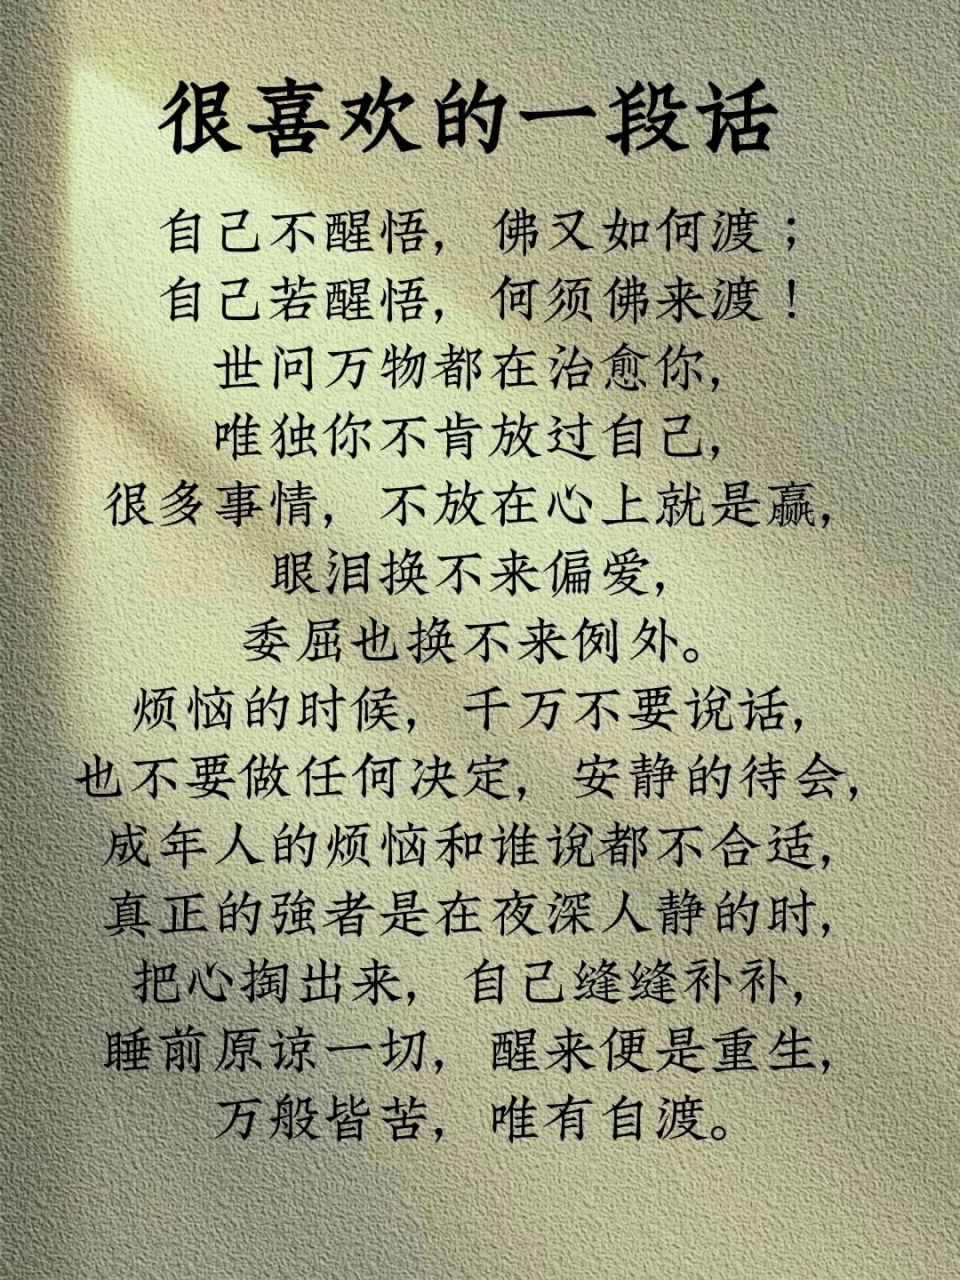 很喜欢的一段话
自己不醒悟，佛又如何渡；
自己若醒悟，何须佛来渡！
世问万物都在治愈你，
唯独你不肯放过自己，
很多事情，不放在心上就是赢，
眼泪换不来偏爱，
委屈也换不来例外。
烦恼的时候，千万不要说话，
也不要做任何决定，安静的待会，
成年人的烦恼和谁说都不合适，
真正的強者是在夜深人静的时，
把心掏出来，自己缝缝补补，
睡前原谅一切，醒来便是重生，
万般皆苦，唯有自渡。